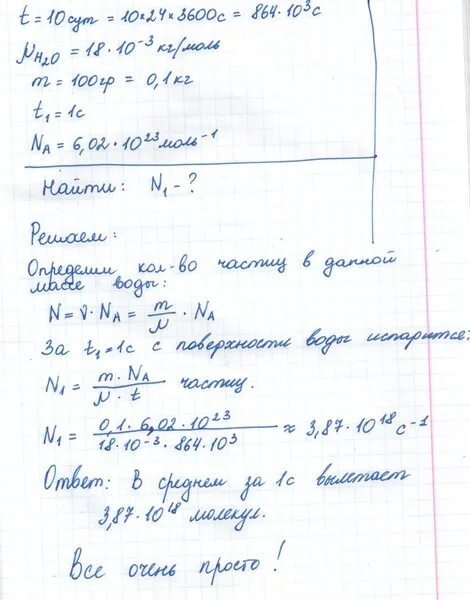 t = 10 сут = 10 × 24 × 3600 с = 864 · 10³ с
μH₂O = 18 · 10⁻³ кг/моль
m = 100 гр = 0,1 кг
t₁ = 1 с
N_A = 6,02 · 10²³ моль⁻¹
Найти: N₁ - ?
Решаем:
Определим кол-во частиц в данной
массе воды:
N = ν · N_A = m/μ · N_A
За t₁ = 1с с поверхности воды испарится:
N₁ = m · N_A / μ · t частиц.
N₁ = 0,1 · 6,02 · 10²³ / 18 · 10⁻³ · 864 · 10³ ≈ 3,87 · 10¹⁸ с⁻¹
Ответ: В среднем за 1с вылетает
3,87 · 10¹⁸ молекул.
Все очень просто!